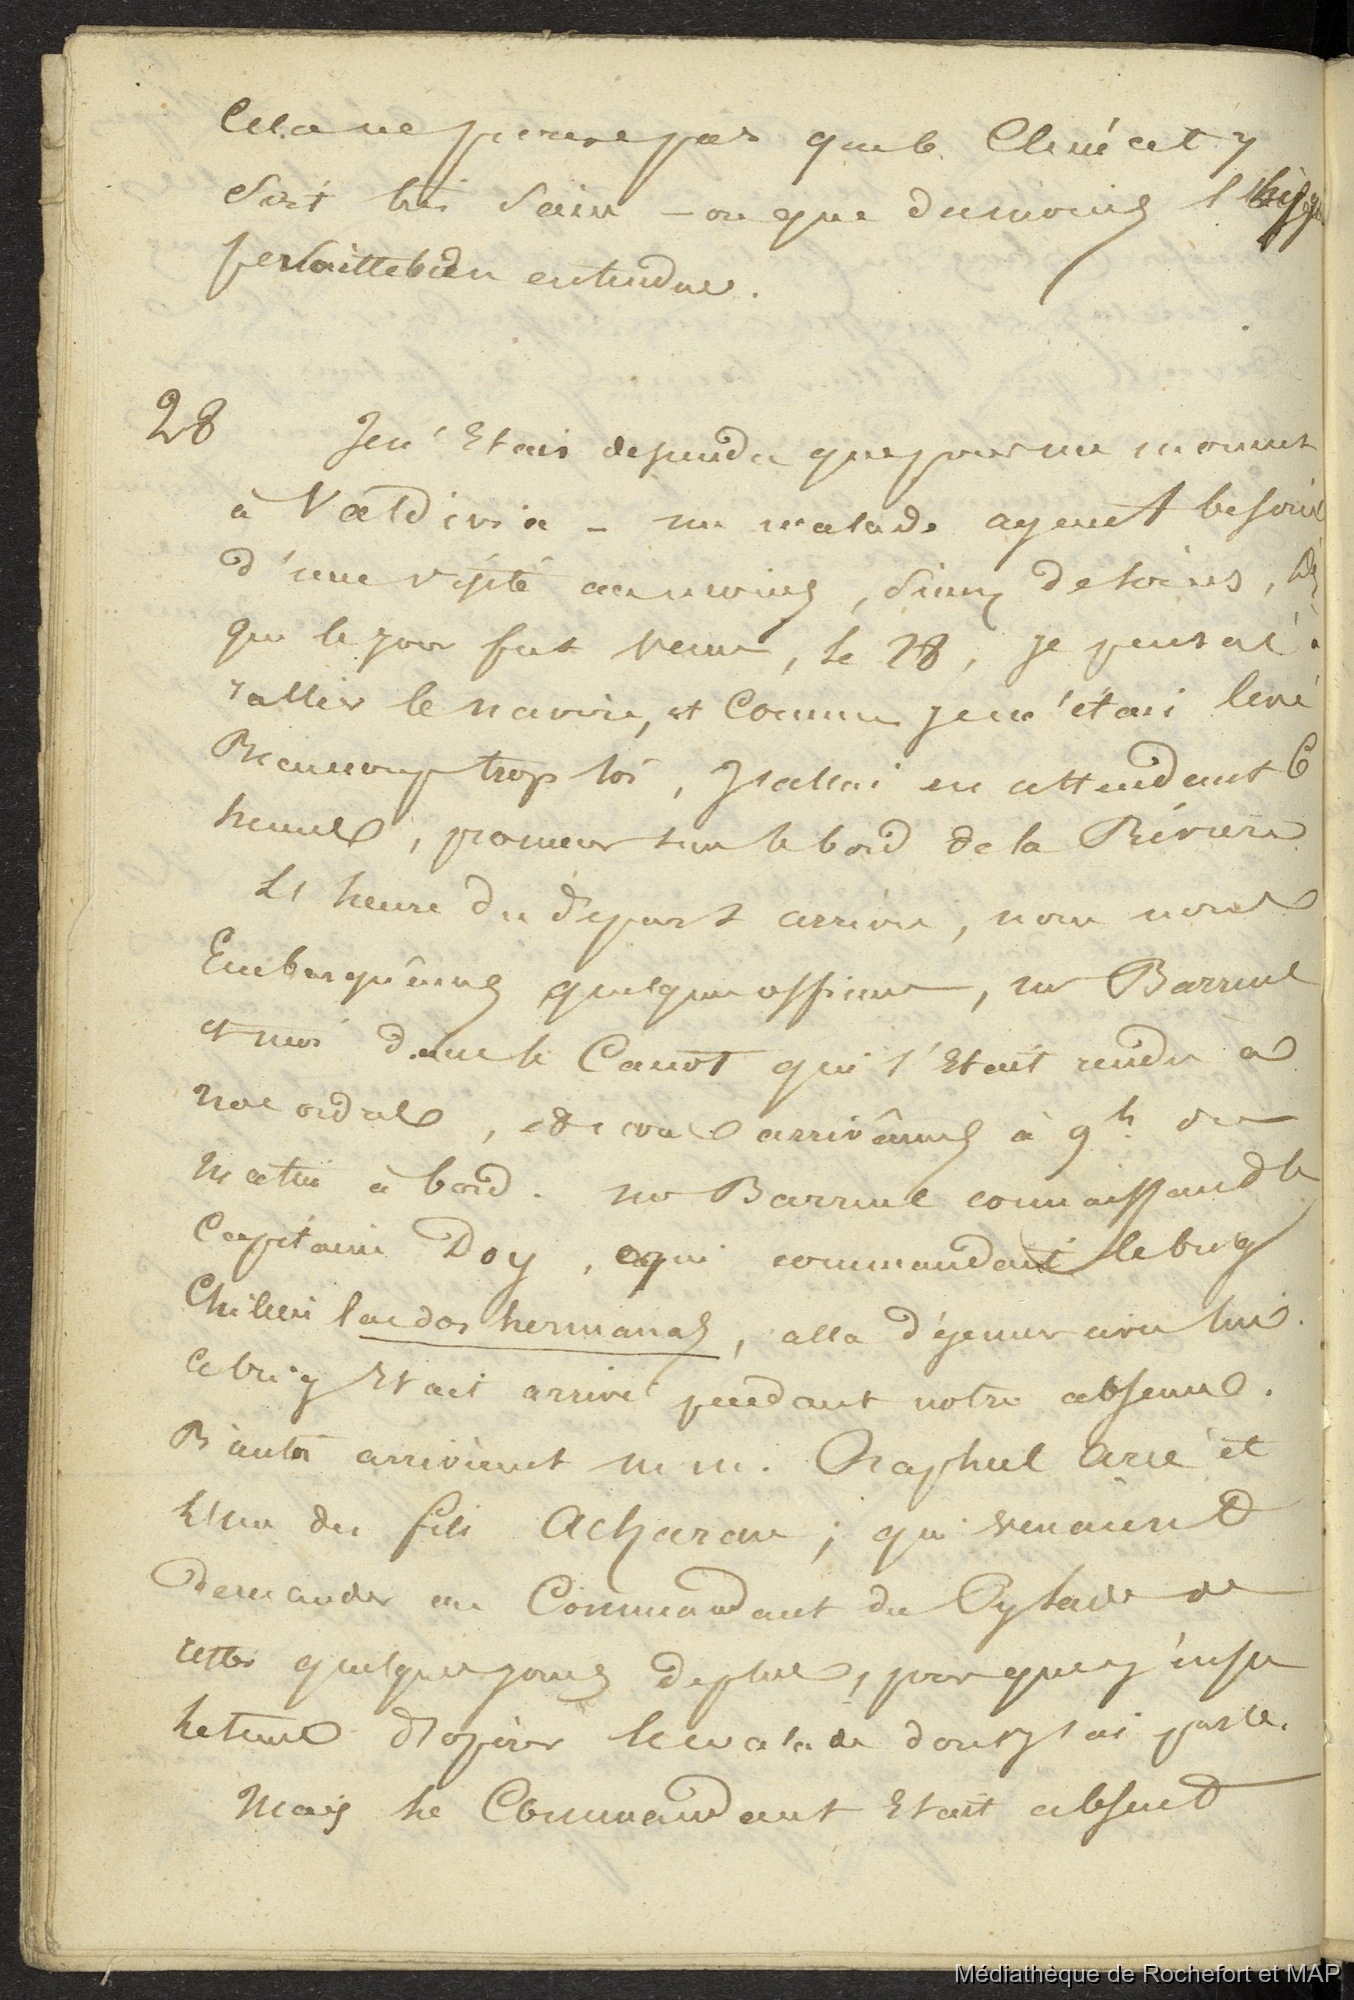 Cela ne prouve pas que le Climat y
soit très sain – ou que du moins l'hygi
fut bien entendue.
28 Je n'étais descendu que pour un moment
à Valdivia – un malade ayant besoin
d'une visite au moins, sinon de soins, Dès
que le jour fut venu, le 28, je pensai à
rallier le navire, et Comme je m'étais levé
Beaucoup trop tôt, J'allai en attendant 6
heures, promener sur le bord de la Rivière
L'heure du départ arrivée, nous nous
Embarquâmes quelques officiers, mr Barruel
et moi dans le Canot qui s'était rendu à
nos ordres, et nous arrivâmes à 9h. du
matin à bord. mr Barruel connaissant le
Capitaine Doy, qui commandait le brig
Chilien las dos hermanas, alla déjeuner avec lui.
ce brig était arrivé pendant notre absence.
Bientôt arrivèrent m.m. Raphael Arcé et
l'un des fils Acharan; qui venaient
Demander au Commandant du Pylade de
rester quelques jours de plus, pour que j'eusse
le temps d'opérer le malade dont j'ai parlé.
Mais le Commandant était absent
Médiathèque de Rochefort et MAP